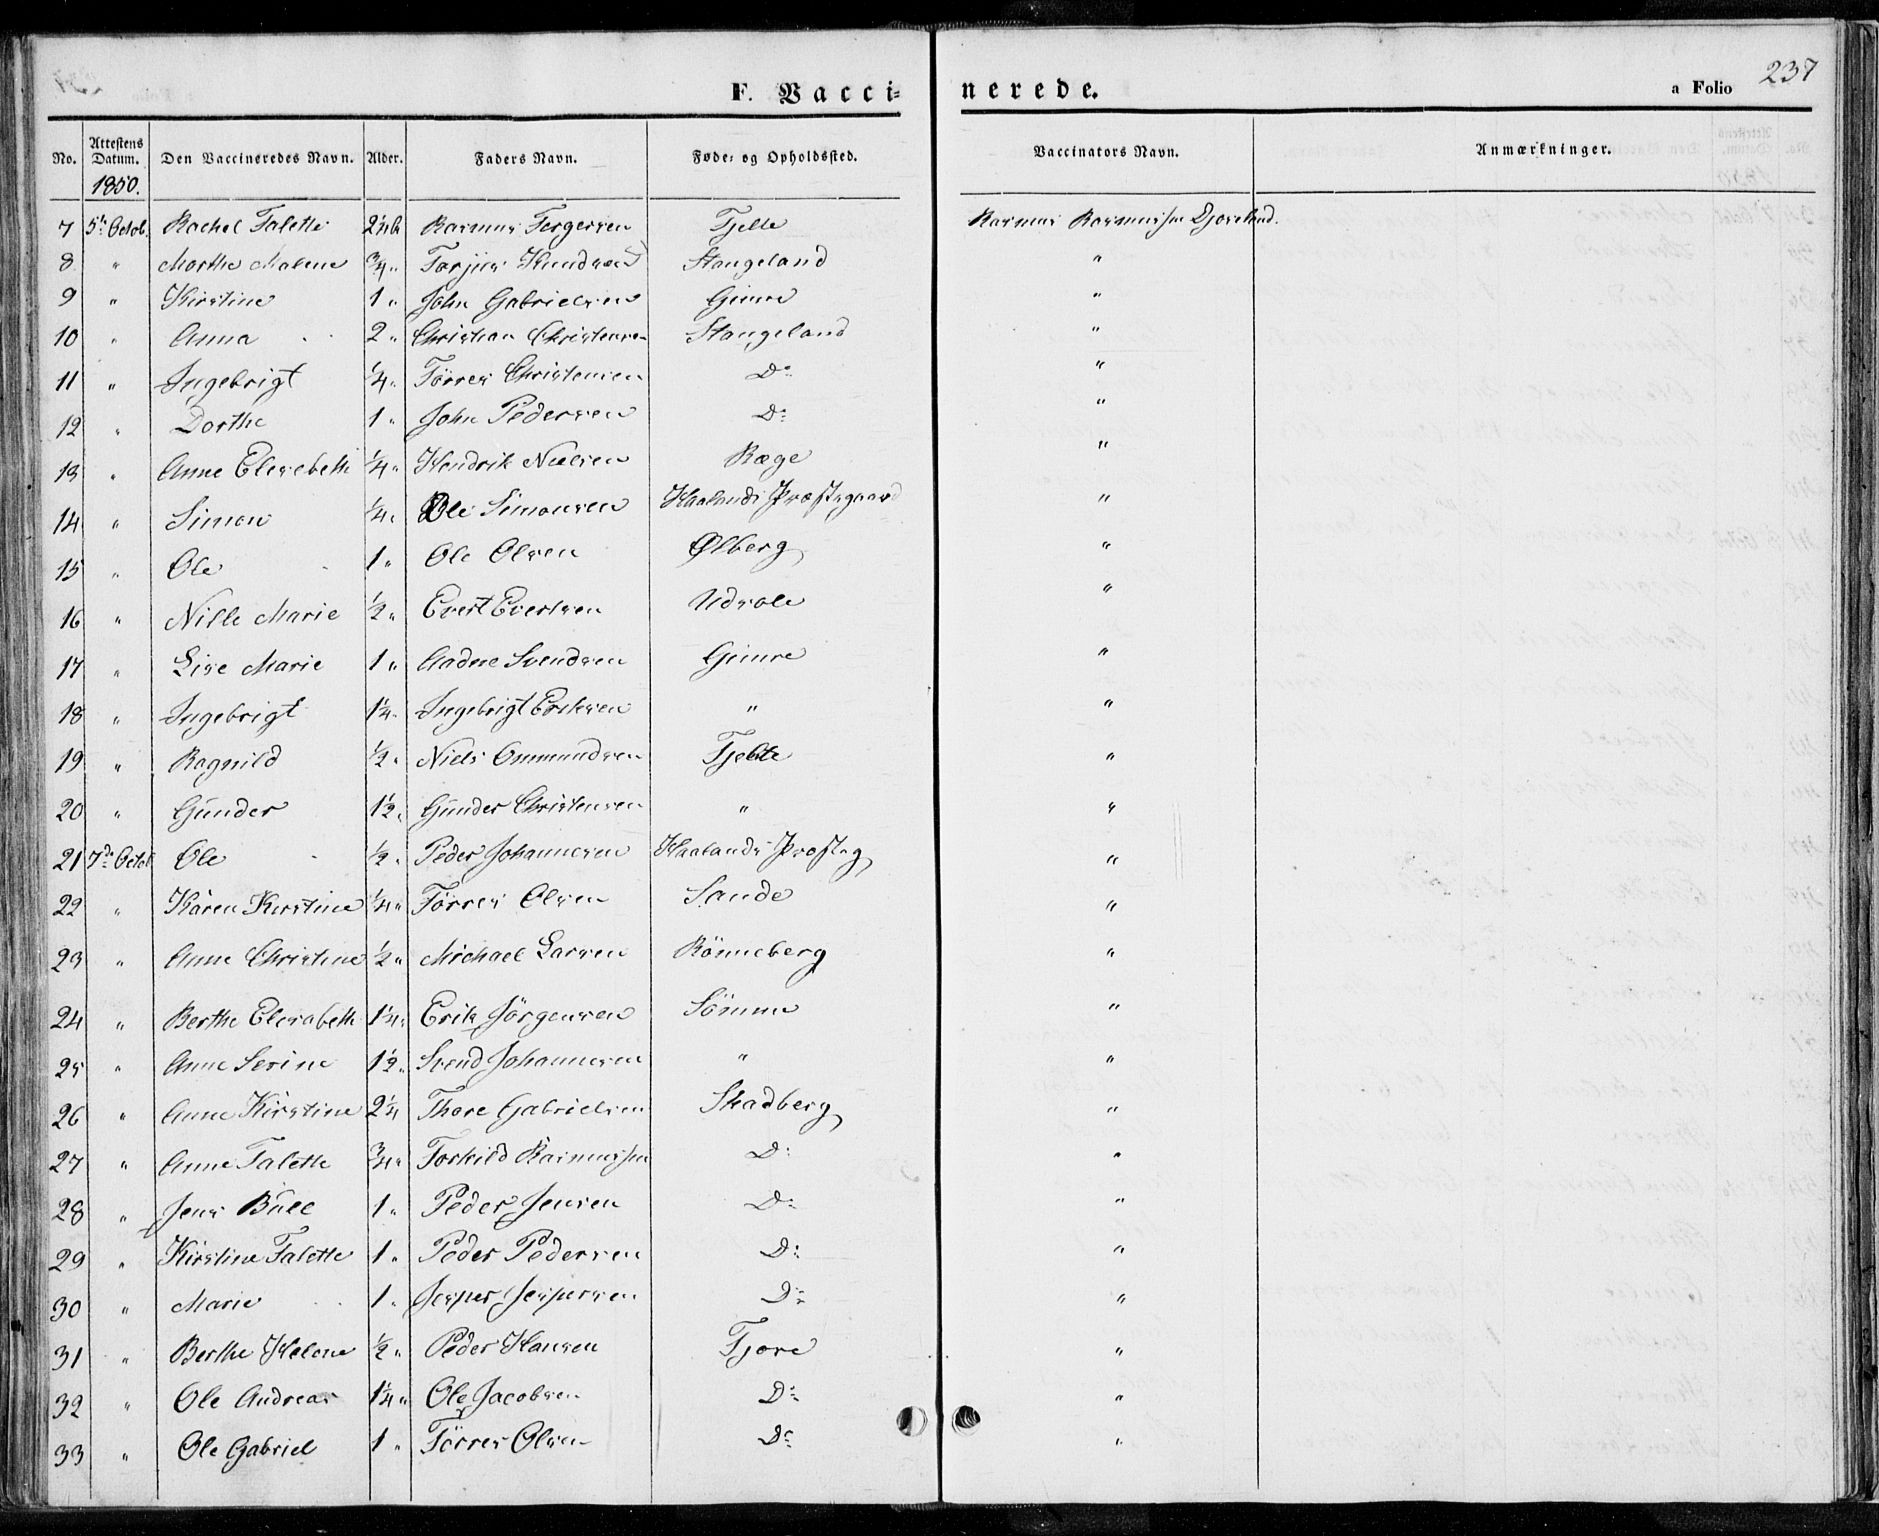 237
F. Vaccinerede.
a Folio
No. | Attestens Datum. | Den Vaccineredes Navn. | Alder. | Faders Navn. | Føde- og Opholdssted. | Vaccinators Navn. | Anmærkninger.
1850.
7 | 5te Octob. | Rachel Talette | 2½ | Rasmus Tergersen | Tjelte | Rasmus Rasmussen
8 | " | Marthe Malene | ¾ " | Torjus Knudsen | Stangeland | "
9 | " | Kirstine | 1 " | John Gabrielsen | Gimre | "
10 | " | Anna | 2 " | Christian Christensen | Stangeland | "
11 | " | Ingebrigt | ¼ " | Törres Christensen | Do | "
12 | " | Dorthe | 1 " | John Pedersen | Do | "
13 | " | Anne Elesebeth | ¼ " | Hendrik Nielsen | Ræge | "
14 | " | Simon | ¼ " | Ole Simonsen | Haalands Præstegaard | "
15 | " | Ole | 1 " | Ole Olsen | Ølberg | "
16 | " | Nille Marie | ½ " | Evert Evertsen | Udsole | "
17 | " | Lise Marie | 1 " | Aadne Svendsen | Gimre | "
18 | " | Ingebrigt | 1¼ " | Ingebrigt Eriksen | " | "
19 | " | Ragnild | ½ " | Niels Ommundsen | Tjelte | "
20 | " | Gunder | 1½ " | Gunder Christensen | " | "
21 | 7de Octob | Ole | ½ " | Peder Johannesen | Haalands Præsteg | "
22 | " | Karen Kirstine | ¼ " | Törres Olsen | Sande | "
23 | " | Anne Christine | ½ " | Michael Larsen | Rönneberg | "
24 | " | Berthe Elesabeth | 1¼ " | Erik Jörgensen | Sömme | "
25 | " | Anne Serine | 1½ " | Svend Johannesen | " | "
26 | " | Anne Kirstine | 2¼ | Thore Gabrielsen | Skadberg | "
27 | " | Anne Talette | ¾ " | Torkild Rasmussen | Do | "
28 | " | Jens Bull | 1 " | Peder Jensen | Do | "
29 | " | Kirstine Talette | 1 " | Peder Pedersen | Do | "
30 | " | Marie | 1 " | Jesper Jespersen | Do | "
31 | " | Berthe Helene | ½ " | Peder Hansen | Tjore | "
32 | " | Ole Andreas | 1¼ " | Ole Jacobsen | Do | "
33 | " | Ole Gabriel | 1 " | Törres Olsen | Do | "